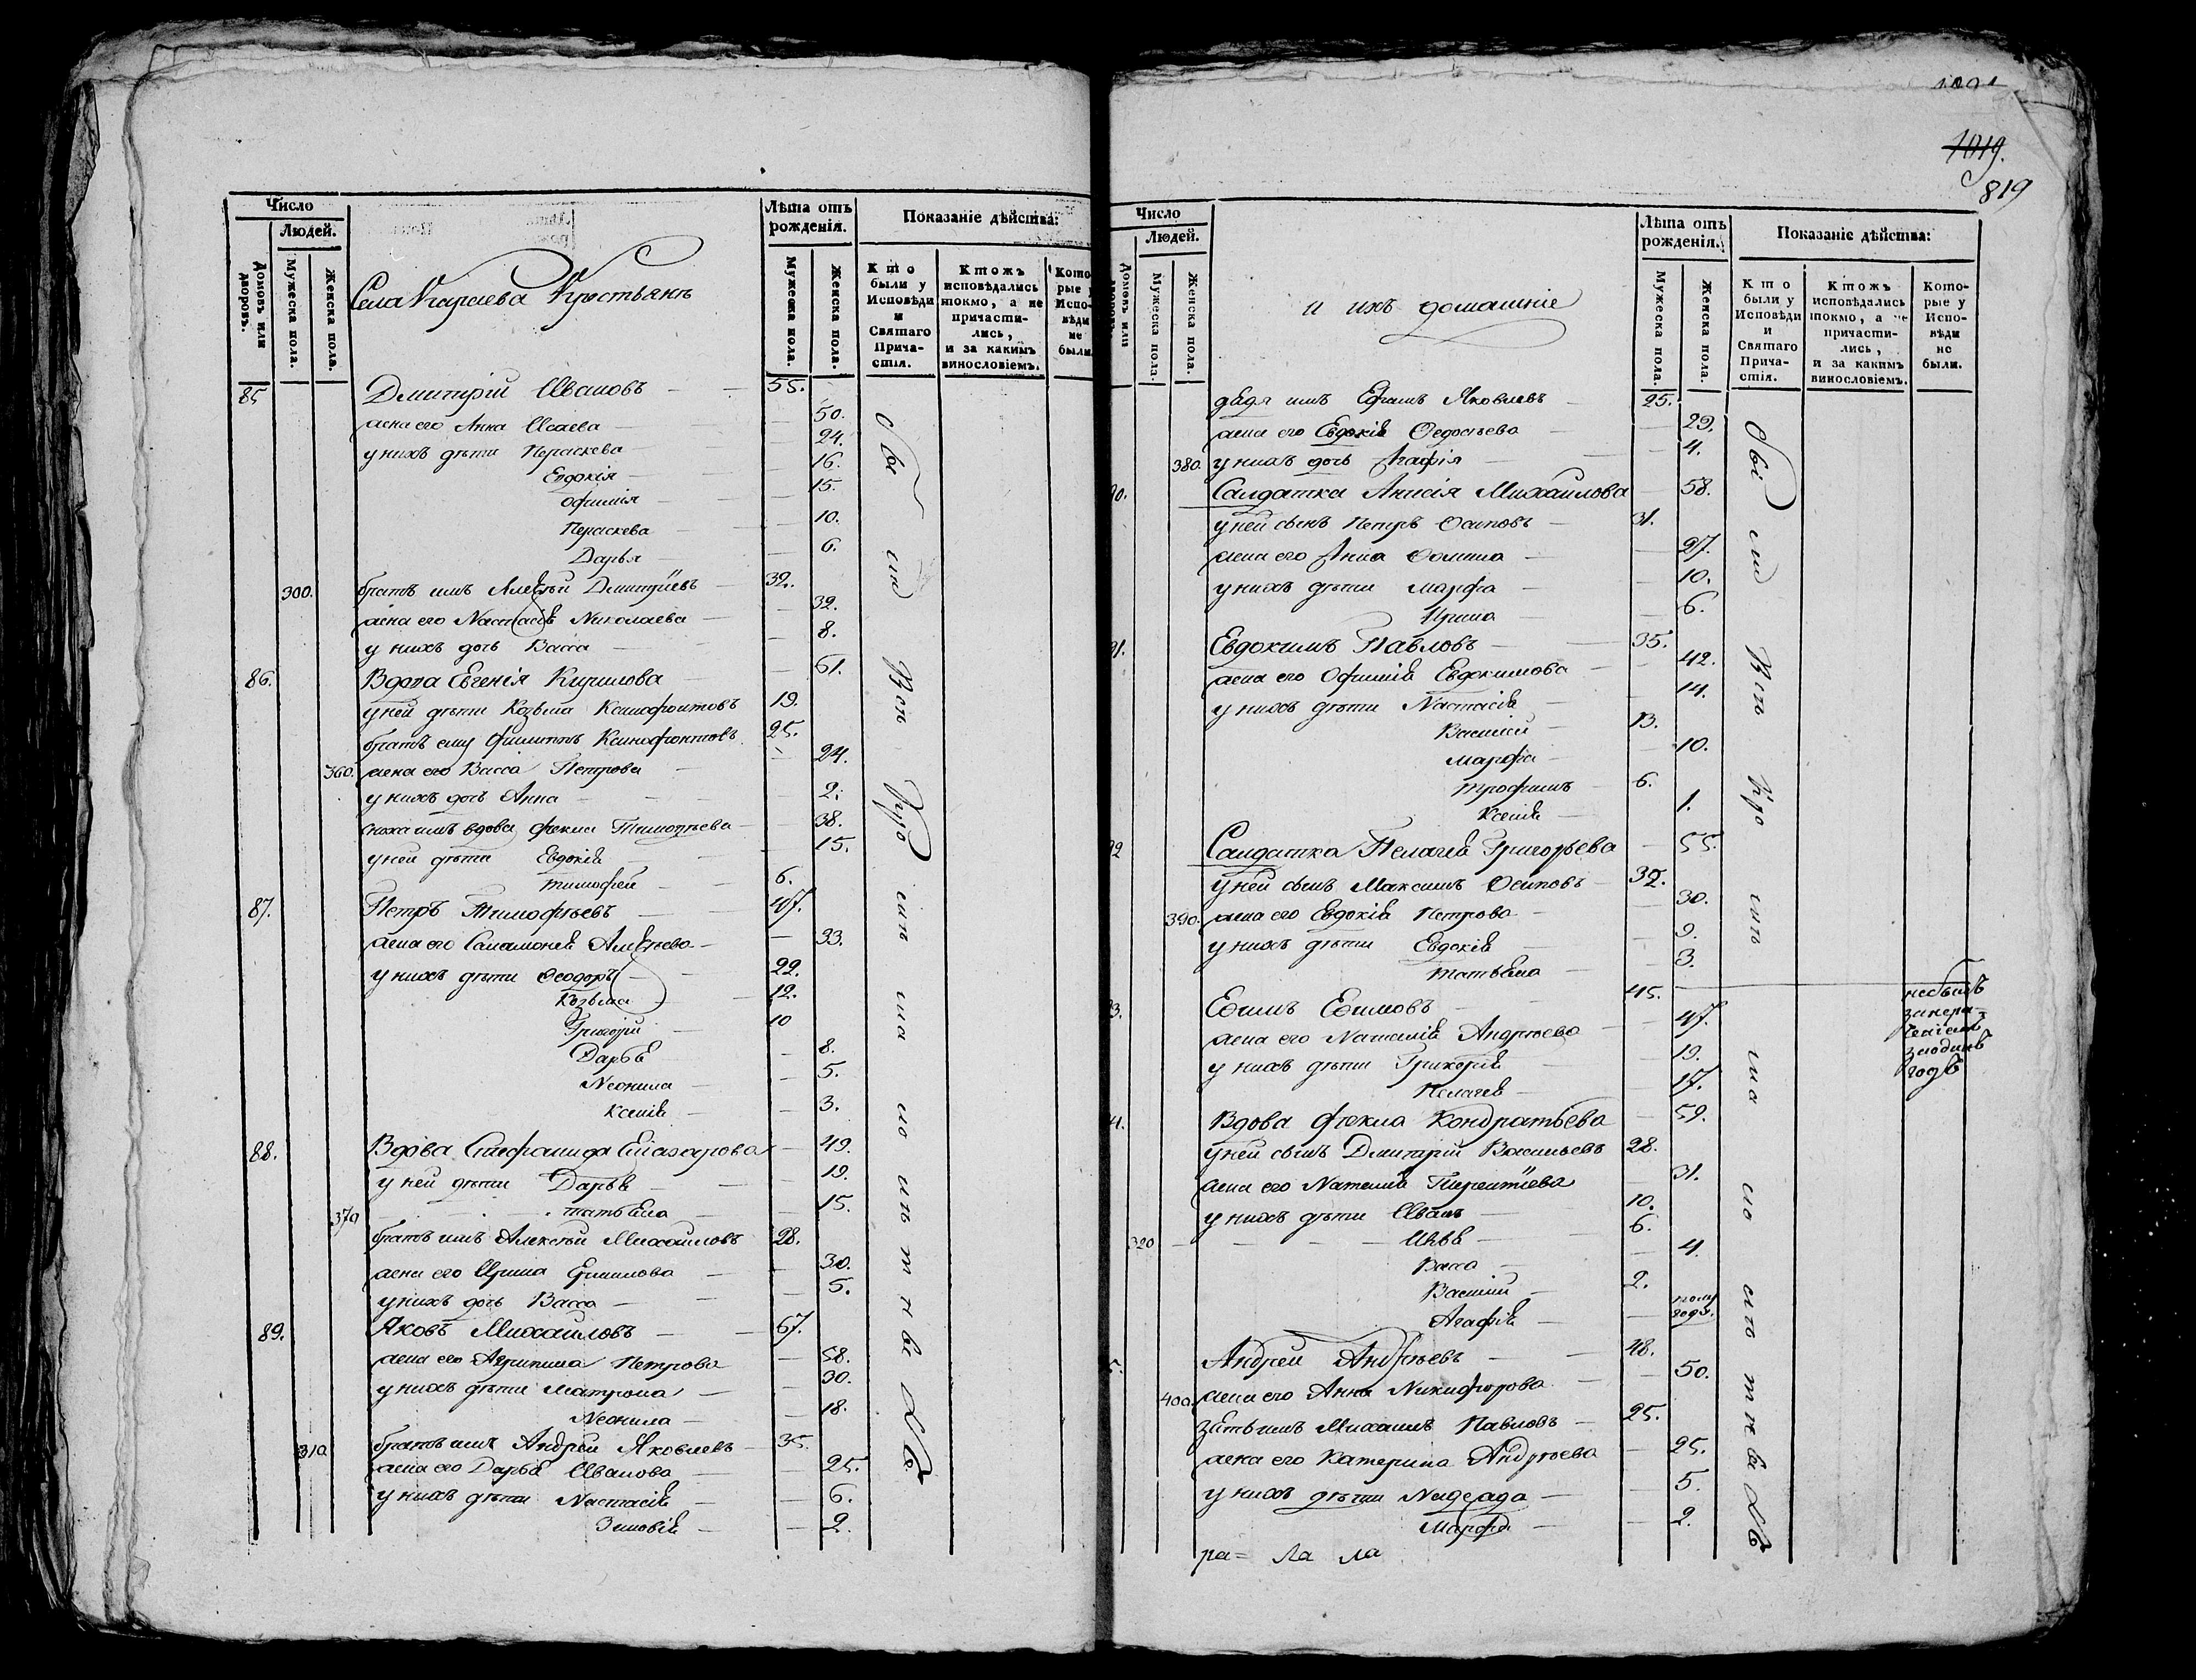 Число
Людей.
Домовъ или дворовъ.
Мужеска пола.
Женска пола.
Села Караева Крестьянъ
Лѣта отъ рожденія.
Мужеска пола.
Женска пола.
Показаніе дѣйства:
Кто были у Исповѣди и Святаго Прича-стія.
Ктожъ исповѣдались токмо, а не причасти-лись, и за какимъ винословіемъ.
Кото- рые Испо- вѣди не были
85 Дмитрій Ивановъ 55.
жена его Анна Исаева 50.
у нихъ дѣти Пераскева 24.
Евдокія 16.
Офимія 15.
Пераскева 10.
Дарья 6.
300. братъ имъ Алексѣй Дмитріевъ 32.
жена его Настасія Николаева 32.
у нихъ дочь Васса 8.
86. Вдова Евгенія Кирилова 61.
у ней дѣти Козьма Ксинофонтовъ 19.
братъ ему Филиппъ Ксинофонтовъ 25.
360. жена его Васса Петрова 24.
у нихъ дочь Анна 2.
сноха имъ вдова Фекла Тимофѣева 38.
у ней дѣти Евдокія 15.
Тимофей 6.
87. Петръ Тимофѣевъ 47.
жена его Саламонея Алексѣева 33.
у нихъ дѣти Ѳеодоръ 22.
Козьма 12.
Григорій 10
Дарья 8.
Неонила 5.
Ксенія 3.
88. Вдова Стефанида Елизарова 49.
у ней дѣти Дарья 19.
370 Татьяна 15.
братъ имъ Алексѣй Михайловъ 28.
жена его Ирина 30.
у нихъ дочь Васса 5.
89. Яковъ Михайловъ 67.
жена его Агрипина Петрова 58.
у нихъ дѣти Матрона 30.
Неонила 18.
310 братъ имъ Андрей Яковлевъ 35.
жена его Дарья Иванова 25.
у нихъ дѣти Настасія 6.
Зиновія 2.
1019.
819
Число
Людей.
Домовъ или
Мужеска пола.
Женска пола.
и ихъ домашніе
Лѣта отъ рожденія.
Мужеска пола.
Женска пола.
Показаніе дѣйства:
Кто были у Исповѣди и Святаго Прича-стія.
Ктожъ исповѣдались токмо, а не причасти-лись, и за какимъ винословіемъ.
Кото-рые у Испо-вѣди не были.
дядя имъ Ефимъ Яковлевъ 25.
жена его Евдокія Ѳедосѣева 29.
380. у нихъ дочь Агафія 4.
90. Салдатка Анисія Михайлова 58.
у ней сынъ Петръ Осиповъ 31.
жена его Анна Фомина 27.
у нихъ дѣти Марфа 10.
Ирина 6.
91. Евдокимъ Павловъ 35.
жена его Офимія Евдокимова 42.
у нихъ дѣти Настасія 14.
Василій 13.
Марфа 10.
Трофимъ 6.
Ксенія 1.
92 Салдатка Пелагея Григорьева 55.
у ней сынъ Максимъ Осиповъ 32.
390. жена его Евдокія Петрова 30.
у нихъ дѣти Евдокія 9.
Татьяна 3.
93. Ефимъ Ефимовъ 45.
жена его Наталія Андрѣева 47.
у нихъ дѣти 19.
Пелагея 17.
небылъ
94. Вдова Фекла Кондратьева 59.
у ней сынъ Дмитрій Васильевъ 28.
жена его Наталія Терентіева 31.
у нихъ дѣти Иванъ 10.
320 6.
Васса 4.
Василій 2.
Агафія полу года.
95. Андрей Андрѣевъ 48.
400. жена его Анна Никифорова 50.
зять имъ Михаилъ Павловъ 25.
жена его Катерина Андрѣева 25.
у нихъ дѣти Надежда 5.
Марфа 2.